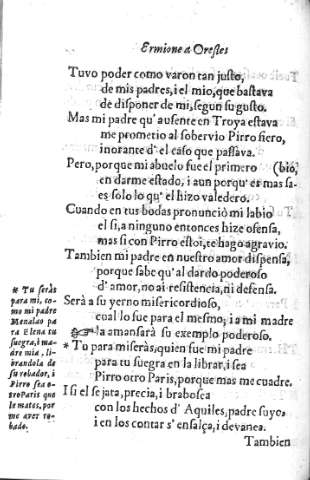 Ermione a Orestes
Tuvo poder como varon tan justo,
de mis padres, i el mio, que bastava
de disponer de mi, segun su gusto.
Mas mi padre qu' ausente en Troya estava
me prometio al sobervio Pirro fiero,
inorante d' el caso que passava.
Pero, porque mi abuelo fue el primero (bio,
en darme estado, i aun porqu' es mas sa-
es solo lo qu' el hizo valedero.
Cuando en tus bodas pronunciò mi labio
el si, a ninguno entonces hize ofensa,
mas si con Pirro estoi, te hago agravio.
Tambien mi padre en nuestro amor dispensa,
porque sabe qu' al dardo poderoso
d' amor, no ai resistencia, ni defensa.
Serà a su yerno misericordioso,
cual lo fue para el mesmo, i a mi madre
☞ la amansarà su exemplo poderoso.
* Tu para mi seràs, quien fue mi padre
para tu suegra en la librar, i sea
Pirro otro Paris, porque mas me cuadre.
I si el se jata, precia, i brabosea
con los hechos d' Aquiles, padre suyo,
i en los contar s' ensalça, i devanea.
Tambien
* Tu seràs
para mi, co-
mo mi padre
Menalao pa
ra Elena tu
suegra, i ma-
dre mia, li-
brandola de
su robador, i
Pirro sea o-
tro Paris que
le mates, por
me aver ro-
bado.